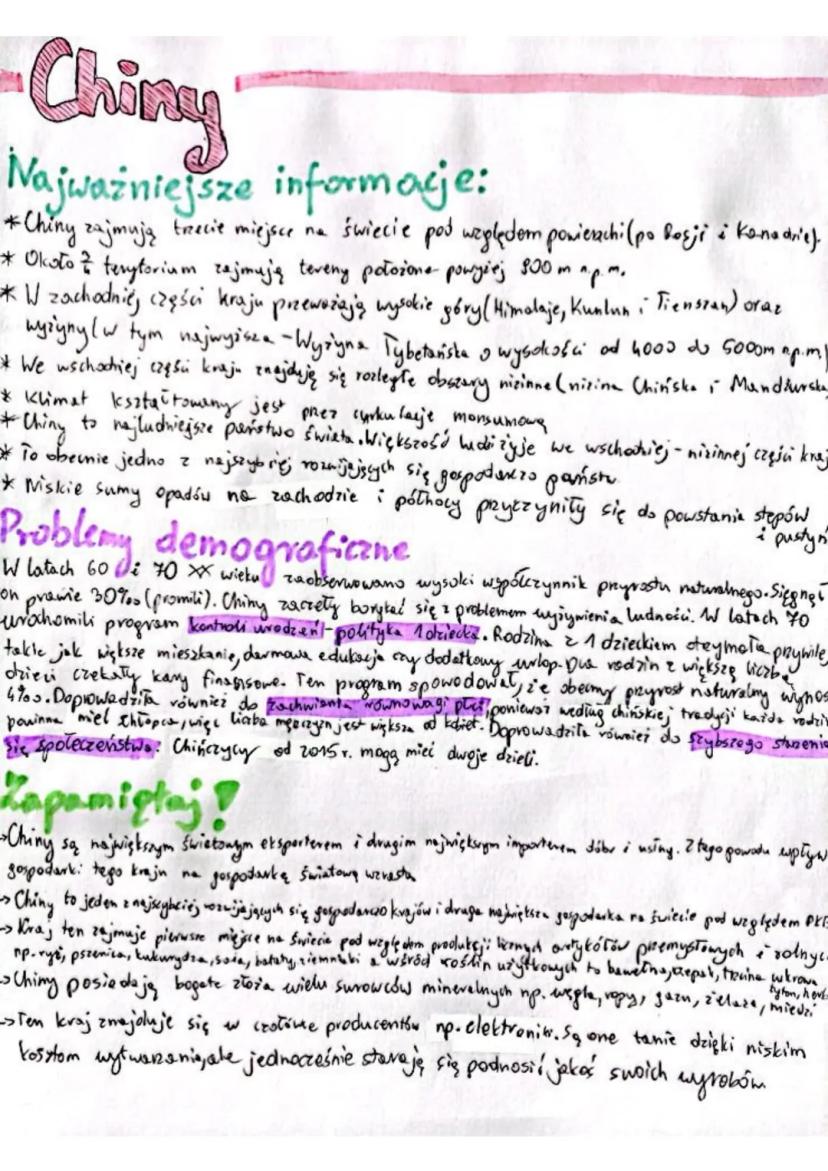 Chiny
Najważniejsze informacje:
* Chiny zajmują trzecie miejsce na świecie pod względem powierzchi (po Rosji i Kanadzie).
* Około terytorium zajmują tereny położone powyżej m n.p.m.
* W zachodniej części kraju przeważają wysokie góry (Himalaje, Kunlun i Tienszan) oraz
wyżyny (w tym najwyższa - Wyżyna Tybetańska o wysokości od 4000 do 5000m n.p.m)
* We wschodniej części kraju znajdują się rozległe obszary nizinne (nizina Chińska i Mandżurska
* Klimat kształtowany jest przez cyrkulację monsunową
* Chiny to najludniejsze państwo świata. Większość ludzi żyje we wschodniej - nizinnej części kraj
* To obecnie jedno z najszybciej rozwijających się gospodarczo państw
* Niskie sumy opadów na zachodzie i północy przyczyniły się do powstania stepów
i pustyń
Problemy demograficzne
W latach 60 i 70 XX wieku zaobserwowano wysoki współczynnik przyrostu naturalnego. Sięgnął
on prawie 30‰ (promili). Chiny zaczęły borykać się z problemem wyżywienia ludności. W latach 70
urochomili program kontroli urodzeń - polityka 1 dziecka. Rodzina z 1 dzieckiem otrzymała przywile
takie jak większe mieszkanie, darmowa edukacja czy dodatkowy urlop. Dla rodzin z większą liczbą
dzieci czekały kary finansowe. Ten program spowodował, że obecny przyrost naturalny wynos
4‰. Doprowadziła również do zachwiania równowagi płci, ponieważ według chińskiej tradycji każda rodzin
powinna mieć chłopca, więc liczba mężczyzn jest większa od kobiet. Doprowadziła również do szybszego starzenia
się społeczeństwa. Chińczycy od 2015 r. mogą mieć dwoje dzieci.
Zapamiętaj!
→ Chiny są największym światowym eksporterem i drugim największym importerem dóbr i usług. Z tego powodu wpływ
gospodarki tego kraju na gospodarkę światową wzrasta
→ Chiny to jeden z najszybciej rozwijających się gospodarczo krajów i druga największa gospodarka na świecie pod względem PKB
→ Kraj ten zajmuje pierwsze miejsce na świecie pod względem produkcji licznych artykułów przemysłowych i rolnyc
np. ryż, pszenica, kukurydza, soia, bataty, ziemniaki a wśród roślin użytkowych to bawełna, rzepak, trzcina cukrowa
tytoń, herb
→ Chiny posiadają bogate złoża wielu surowców mineralnych np. węgla, ropy, gazu, żelaza, miedzi
→ Ten kraj znajduje się w czołówce producentów np. elektroniki. Są one tanie dzięki niskim
kosztom wytwarzania, ale jednocześnie starają się podnosić jakość swoich wyrobów